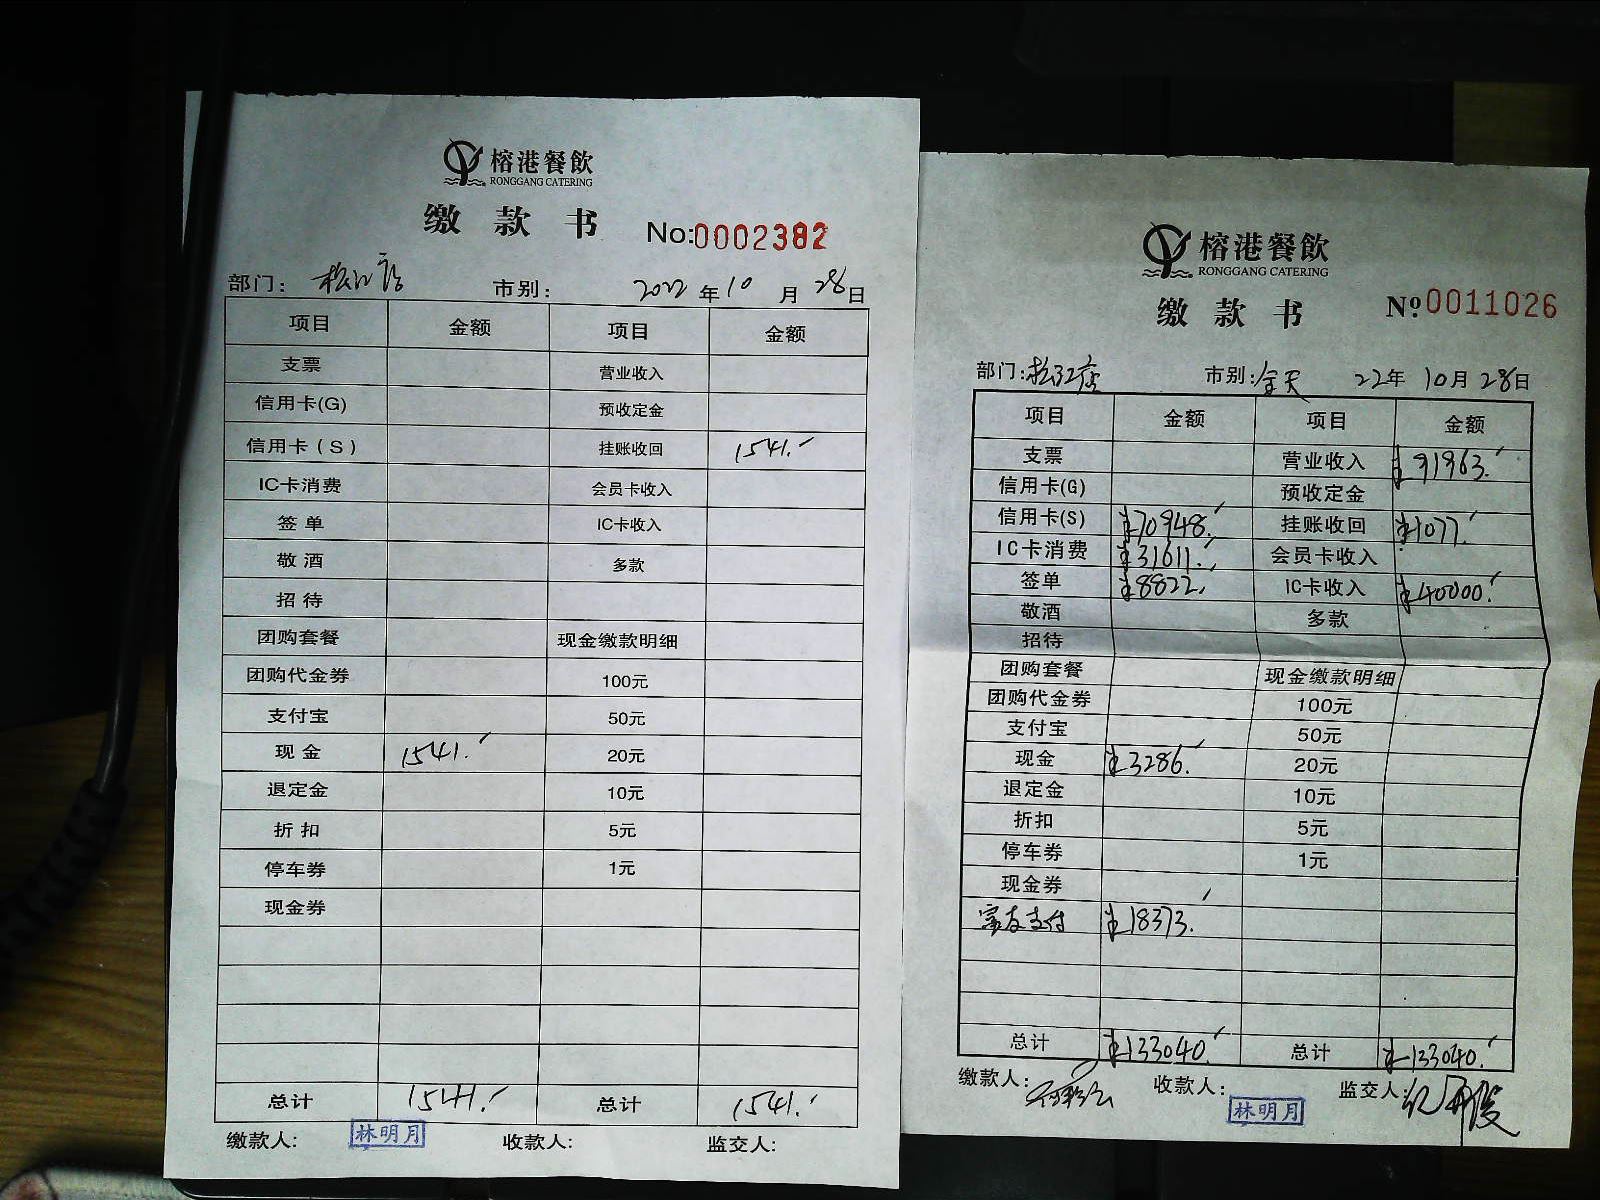 榕港餐飲
RONGGANG CATERING
缴款书 No:0002382
部门: 松江店 市别: 2022年10月28日
项目 金额 项目 金额
支票 营业收入
信用卡(G) 预收定金
信用卡(S) 挂账收回 1541.-
IC卡消费 会员卡收入
签单 IC卡收入
敬酒 多款
招待
团购套餐 现金缴款明细
团购代金券 100元
支付宝 50元
现金 1541.- 20元
退定金 10元
折扣 5元
停车券 1元
现金券
总计 1541.- 总计 1541.-
缴款人: 林明月 收款人: 监交人:
榕港餐飲
RONGGANG CATERING
缴款书 No.0011026
部门:松江店 市别:全天 22年10月28日
项目 金额 项目 金额
支票 营业收入 ¥91963.-
信用卡(G) 预收定金
信用卡(S) ¥70948.- 挂账收回 ¥1077.-
IC卡消费 ¥31611.- 会员卡收入
签单 ¥8822.- IC卡收入 ¥40000.-
敬酒 多款
招待
团购套餐 现金缴款明细
团购代金券 100元
支付宝 50元
现金 ¥3286.- 20元
退定金 10元
折扣 5元
停车券 1元
现金券
富友支付 ¥18373.-
总计 ¥133040.- 总计 ¥133040.-
缴款人: 收款人: 林明月 监交人: